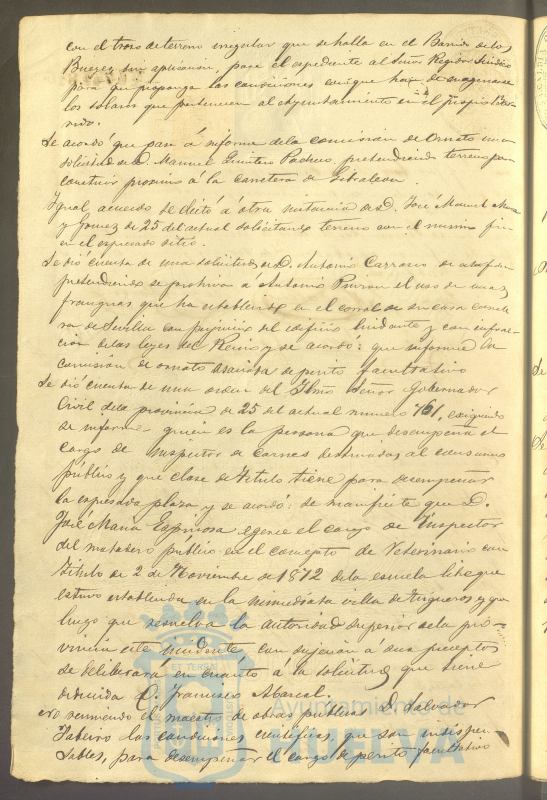 con el trozo de terreno irregular que se halla en el Barrio de los
sin aplicacion, pase el expediente al Señor Regidor Sindico
para que proponga las condiciones con que han de enagenarse
los solares que pertenecen al Ayuntamiento en el propio
Se acordó que pase á informe de la comision de Ornato una
solicitud de D. Manuel Quintero Pacheco, pretendiendo terreno para
construir proximo á la carretera de Gibraleon.
Igual acuerdo se dictó á otra instancia de D. José Manuel
y Gomez de 25 del actual solicitando terreno con el mismo fin
en el espresado sitio.
Se dió cuenta de una solicitud de D. Antonio Carrasco de
pretendiendo se prohiva á Antonio el uso de unas
fraguas que ha establecido en el corral de su casa
de Sevilla con perjuicio del edificio lindante y con infrac-
cion de las leyes del Reino y se acordó: que informe la
comision de ornato asistida de perito facultativo
Se dió cuenta de una orden del Ilmo Señor Gobernador
Civil de la provincia de 25 del actual numero 761, exigiendo
se informe quien es la persona que desempeña el
cargo de inspector de carnes destinadas al consumo
público y que clase de titulo tiene para desempeñar
la espresada plaza y se acordó: de manifieste que D.
José Maria Espinosa egerce el cargo de Inspector
del matadero público en el concepto de Veterinario con
titulo de 2 de Noviembre de 1872 de la escuela libre que
estuvo establecida en la inmediata villa de Trigueros y que
luego que resuelva la autoridad superior de la pro-
vincia este incidente con sujecion á sus preceptos
se deliberará en cuanto á la solicitud que tiene
deducida D. Francisco Abarcal.
No reuniendo el maestro de obras públicas D. Salvador
las condiciones cientificas, que son indispen-
sables, para desempeñar el cargo de perito facultativo
Ayuntamiento de
HUELVA